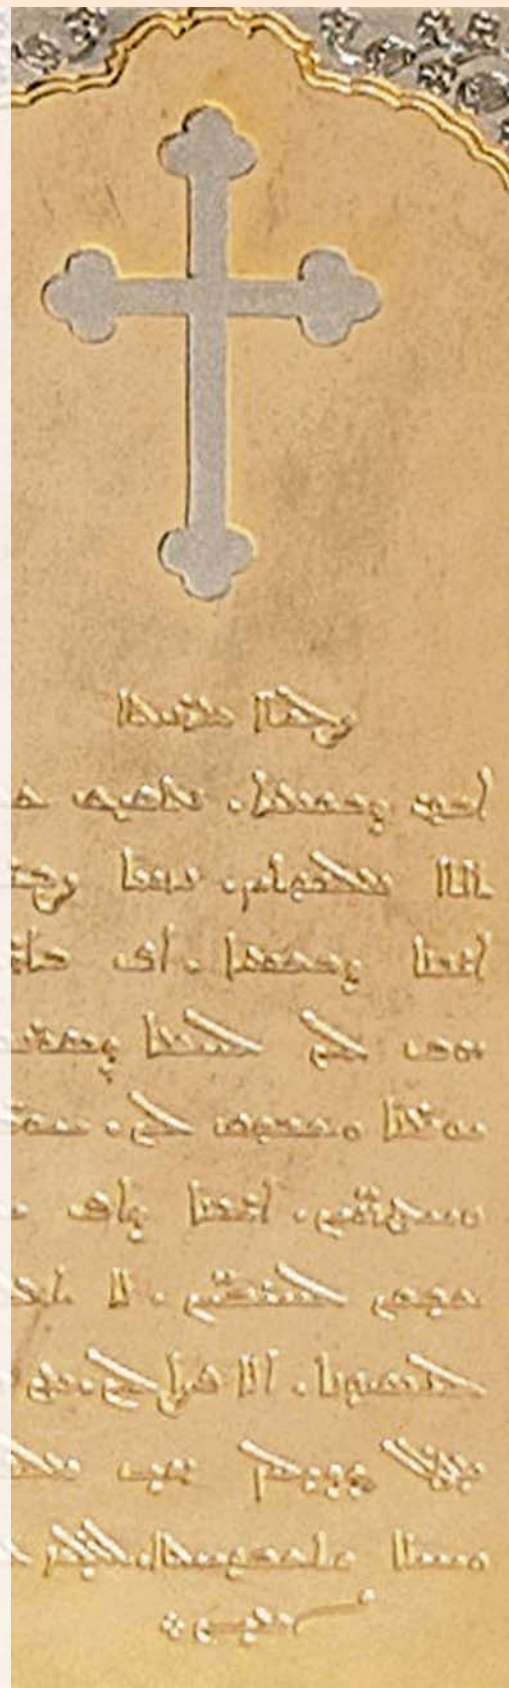 ܨܠܘܬܐ ܡܪܢܝܬܐ
ܐܒܘܢ ܕܒܫܡܝܐ. ܢܬܩܕܫ
ܬܐܬܐ ܡܠܟܘܬܟ. ܢܗܘܐ ܨܒܝ
ܐܝܟܢܐ ܕܒܫܡܝܐ. ܐܦ ܒܐܪ
ܗܒ ܠܢ ܠܚܡܐ ܕܣܘܢܩ
ܝܘܡܢܐ. ܘܫܒܘܩ ܠܢ. ܚܘܒ
ܘܚܛܗܝܢ. ܐܝܟܢܐ ܕܐܦ
ܫܒܩܢ ܠܚܝܒܝܢ. ܠܐ ܬܥܠ
ܠܢܣܝܘܢܐ. ܐܠܐ ܦܨܐ ܠܢ. ܡܢ
ܡܛܠ ܕܕܝܠܟ ܗܝ ܡܠܟ
ܘܚܝܠܐ ܘܬܫܒܘܚܬܐ. ܠܥܠܡ
ܐܡܝܢ܀